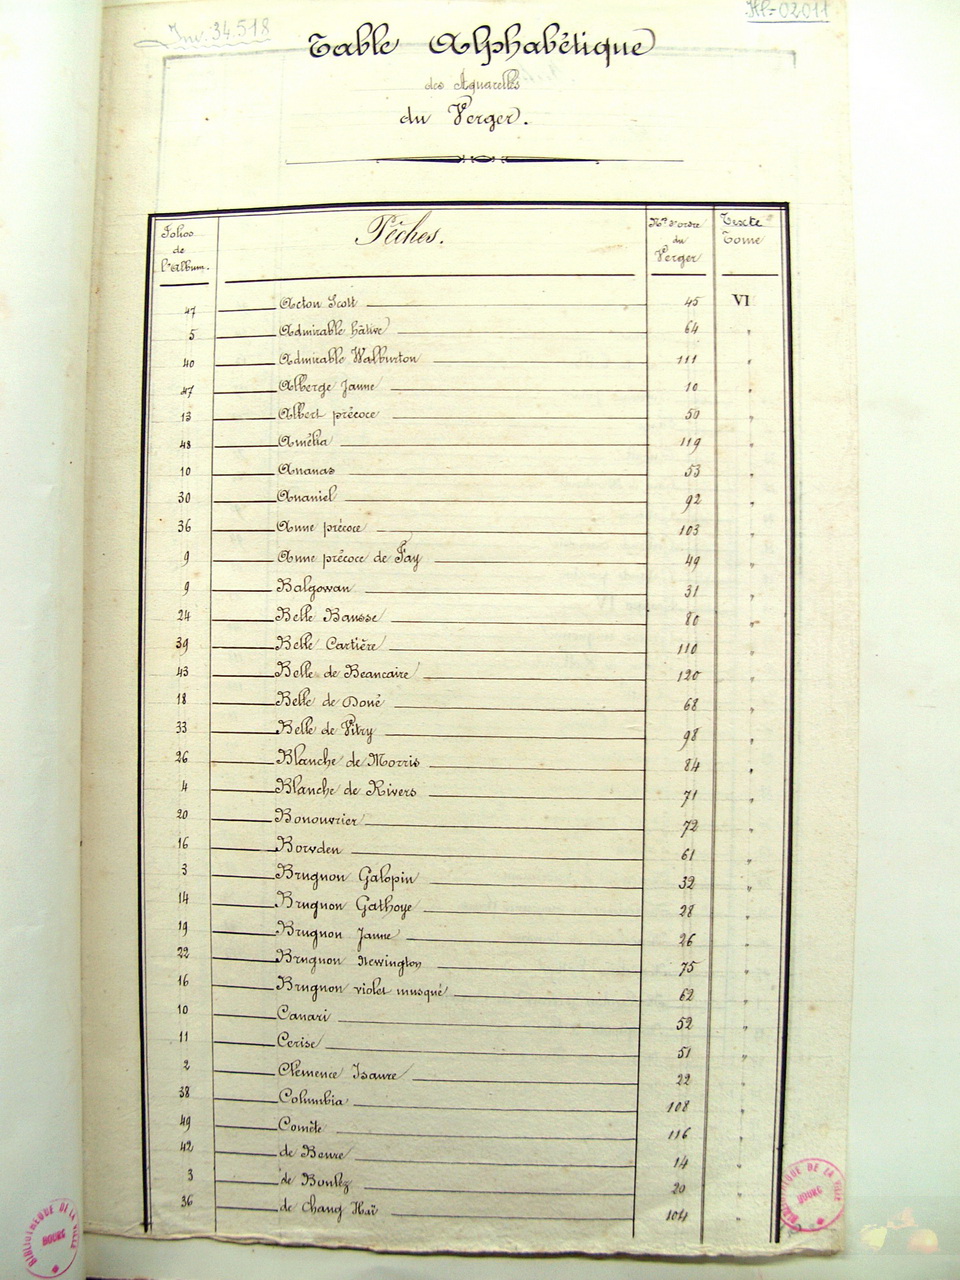 Inv. 34.518
Al-02011
Table Alphabétique
des Aquarelles
du Verger.
Folios de l'Album. Pêches. Nos d'ordre du Verger Texte Tome
47 Acton Scott 45 VI
5 Admirable hâtive 64 "
40 Admirable Walburton 111 "
47 Alberge Jaune 10 "
13 Albert précoce 50 "
48 Amélia 119 "
10 Ananas 53 "
30 Ananiel 92 "
36 Anne précoce 103 "
9 Anne précoce de Fay 49 "
9 Balgowan 31 "
24 Belle Bausse 80 "
39 Belle Cartière 110 "
43 Belle de Beaucaire 120 "
18 Belle de Doué 68 "
33 Belle de Vitry 98 "
26 Blanche de Morris 84 "
4 Blanche de Rivers 71 "
20 Bonouvrier 72 "
16 Bowden 61 "
3 Brugnon Galopin 32 "
14 Brugnon Gathoye 28 "
19 Brugnon Jaune 26 "
22 Brugnon Newington 75 "
16 Brugnon violet musqué 62 "
10 Canari 52 "
11 Cerise 51 "
2 Clémence Isaure 22 "
38 Columbia 108 "
49 Comète 116 "
42 de Beure 14 "
3 de Boulez 20 "
36 de Chang Haï 104 "
BIBLIOTHÈQUE DE LA VILLE
BOURG
BIBLIOTHÈQUE DE LA VILLE
BOURG